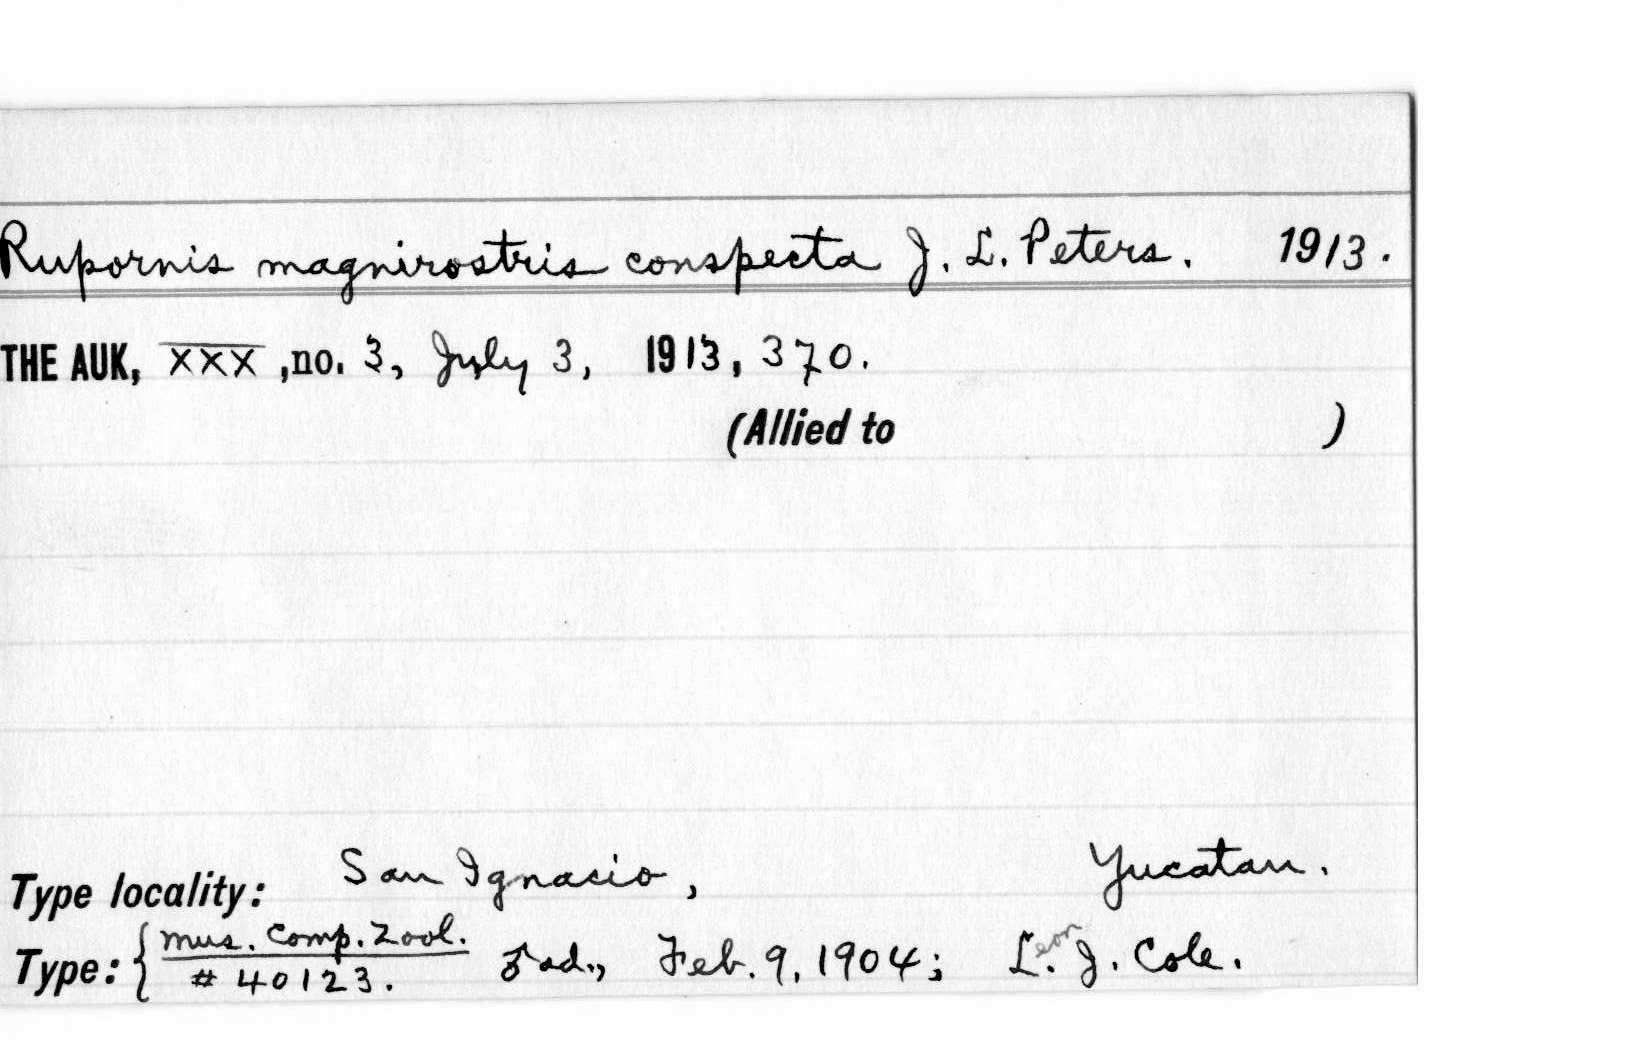 Rupornis magnirostris conspecta J. L. Peters. 1913.
THE AUK, XXX, no. 3, July 3, 1913, 370.
(Allied to )
Type locality: San Ignacio, Yucatan.
Type: { Mus. Comp. Zool. # 40123. ♂ ad., Feb. 9, 1904; Leon J. Cole.